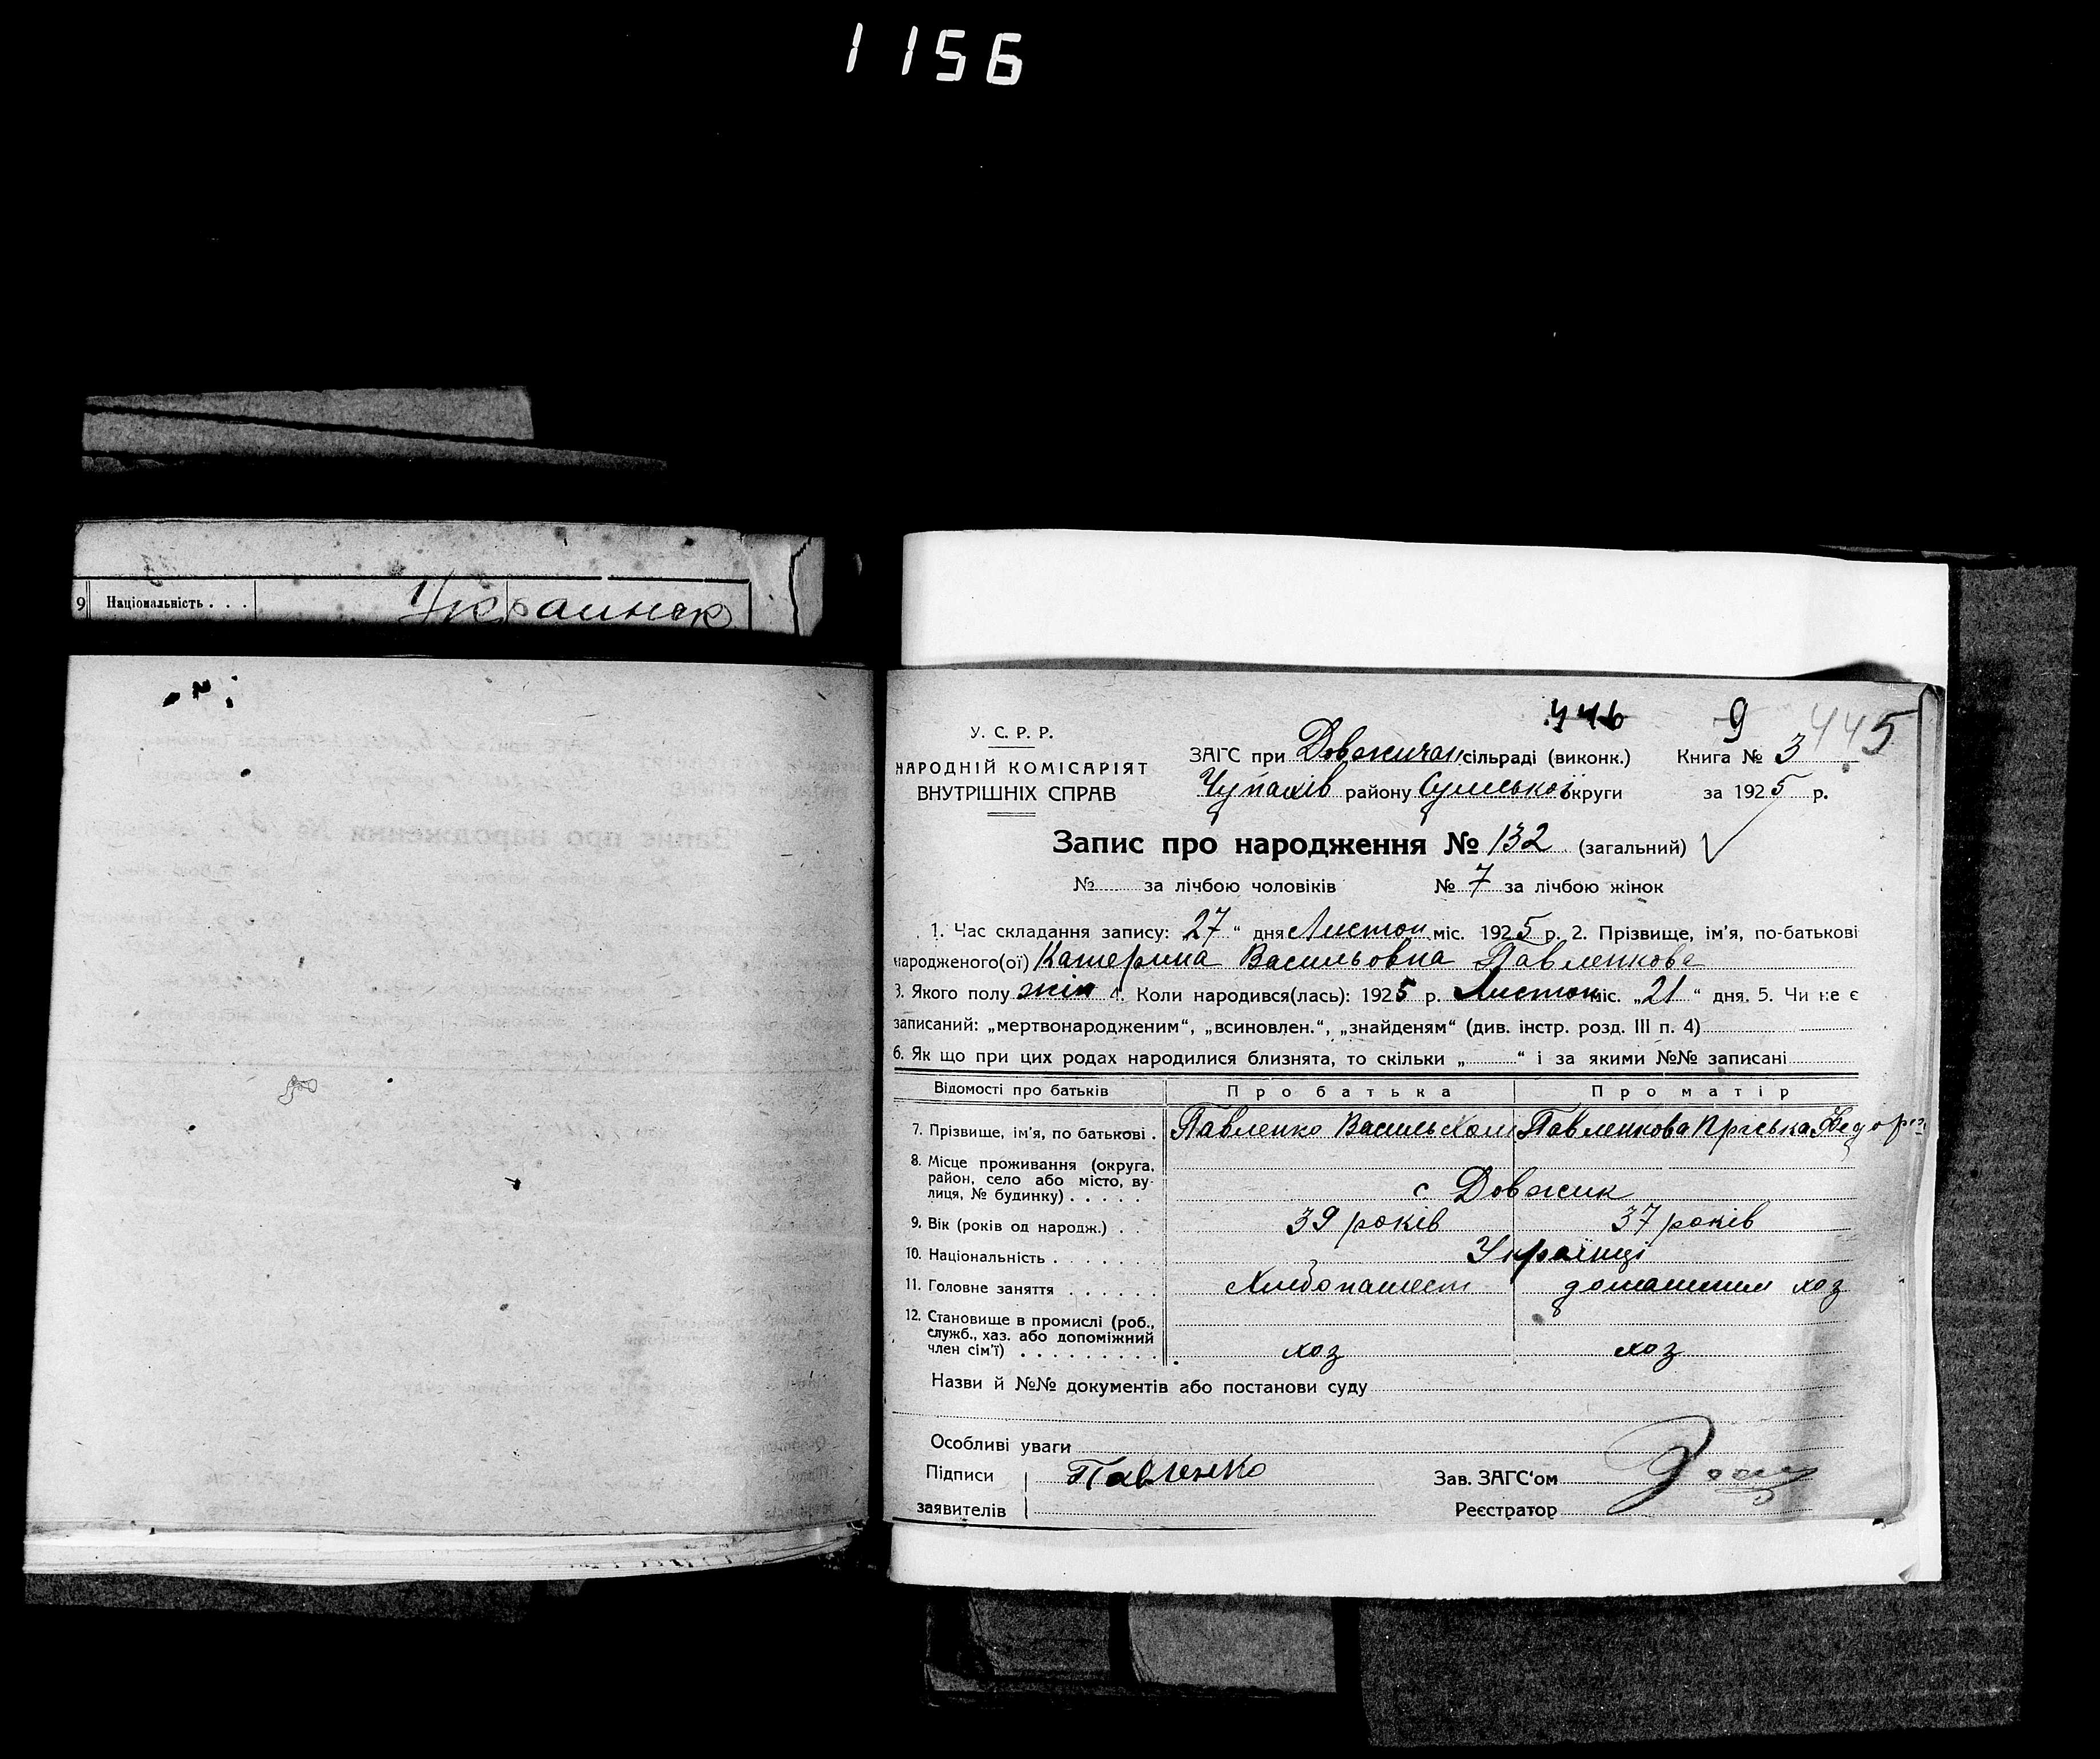 1156
9 Національність . . . Украинск
446 9 445
У. С. Р. Р.
НАРОДНІЙ КОМІСАРІЯТ
ВНУТРІШНІХ СПРАВ
ЗАГС при Довжичан сільраді (виконк.) Книга № 3
Чупахів району Сумської округи за 1925 р.
Запис про народження № 132 (загальний)
№ за лічбою чоловіків № 7 за лічбою жінок
1. Час складання запису: „27“ дня Листоп міс. 1925 р. 2. Прізвище, ім'я, по-батькові
народженого(ої) Катерина Васильовна Павленкова
3. Якого полу жін 4. Коли народився(лась): 1925 р. Листоп міс. „21“ дня. 5. Чи не є
записаний: „мертвонародженим“, „всиновлен.“, „знайденям“ (див. інстр. розд. III п. 4)
6. Як що при цих родах народилися близнята, то скільки „ “ і за якими №№ записані
Відомості про батьків Про батька Про матір
7. Прізвище, ім'я, по батькові . Павленко Василь Павленкова Пріська Федор
8. Місце проживання (округа,
район, село або місто, ву-
лиця, № будинку) . . . . . с Довжик
9. Вік (років од народж.) . . 39 років 37 років
10. Національність . . . . . . Українці
11. Головне заняття . . . . . . Хлібопашест домашним хоз
12. Становище в промислі (роб.,
служб., хаз. або допоміжний
член сім'ї) . . . . . . . . . хоз хоз
Назви й №№ документів або постанови суду
Особливі уваги
Підписи Павленко Зав. ЗАГС'ом
заявителів Реєстратор